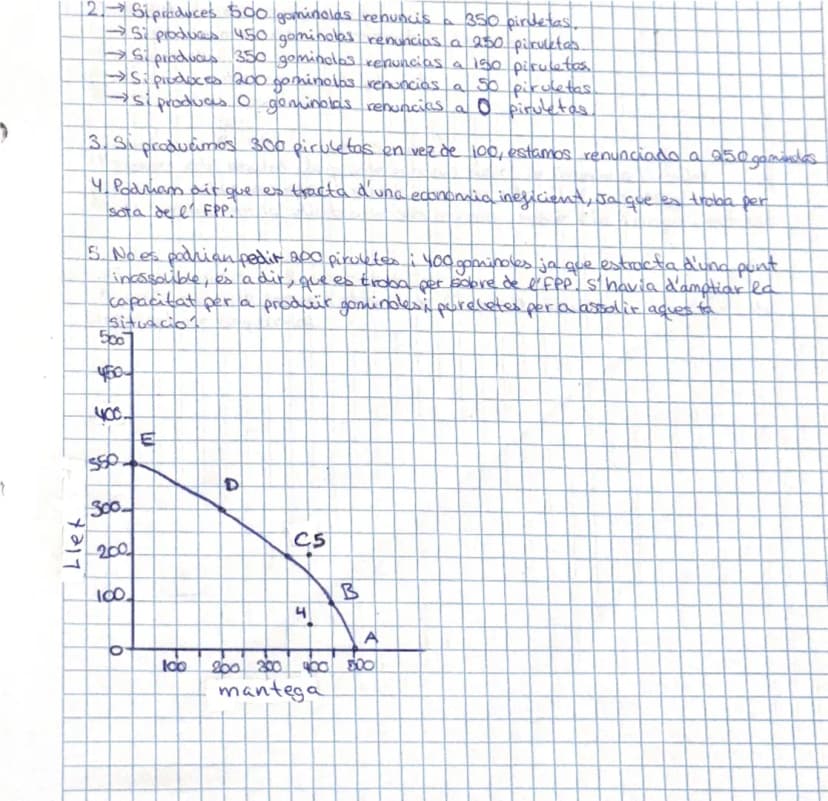 2. → Si produces 500 gominolas renuncis a 350 piruletas.
→ Si produces 450 gominolas renuncias a 250 piruletas
→ Si produces 350 gominolas renuncias a 150 piruletas
→ Si produces 200 gominolas renuncias a 50 piruletas
→ Si produces 0 gominolas renuncias a 0 piruletas.
3. Si producimos 300 piruletas en vez de 100, estamos renunciado a 250 gominolas
4. Podriam dir que es tracta d'una economia ineficient, ja que es troba per
sota de l' FPP.
5. No es podrian pedir 200 piruletes i 400 gominoles ja que es tracta d'una punt
inassolible, és a dir, que es troba per sobre de l'FPP. S'havia d'ampliar la
capacitat per a produir gominoles i pureletes per a assolir aquesta
situació.
500
450
400
E
350
D
300
C 5
200
B
100
4
A
0
100 200 300 400 500
Llet
mantega